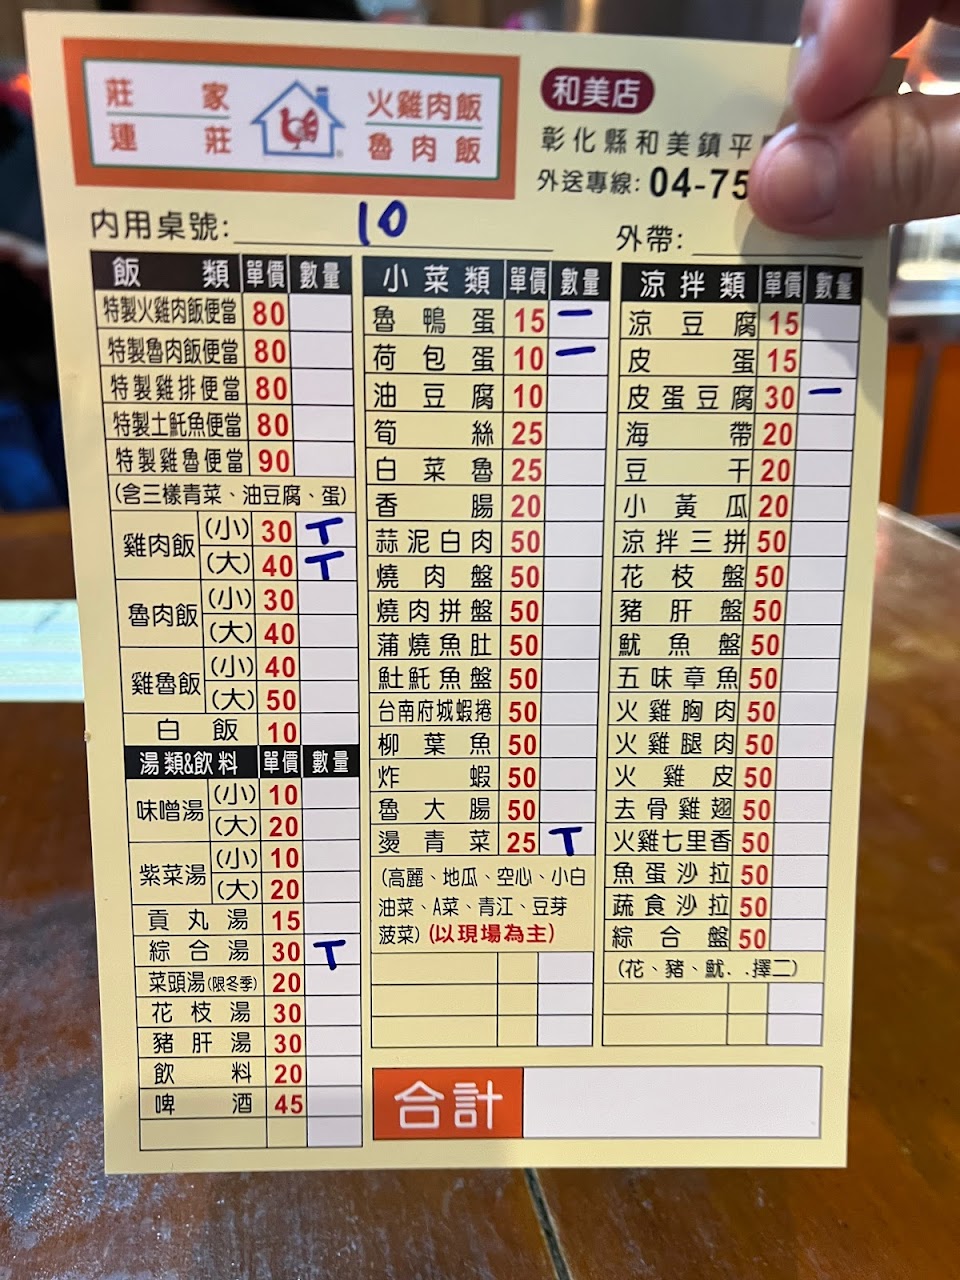 莊家 火雞肉飯
連莊 魯肉飯
和美店
彰化縣和美鎮平
外送專線: 04-75
內用桌號: 10
外帶:
飯類 單價 數量
特製火雞肉飯便當 80
特製魯肉飯便當 80
特製雞排便當 80
特製土魠魚便當 80
特製雞魯便當 90
(含三樣青菜、油豆腐、蛋)
雞肉飯 (小) 30 T
(大) 40 T
魯肉飯 (小) 30
(大) 40
雞魯飯 (小) 40
(大) 50
白飯 10
湯類&飲料 單價 數量
味噌湯 (小) 10
(大) 20
紫菜湯 (小) 10
(大) 20
貢丸湯 15
綜合湯 30 T
菜頭湯(限冬季) 20
花枝湯 30
豬肝湯 30
飲料 20
啤酒 45
小菜類 單價 數量
魯鴨蛋 15 一
荷包蛋 10 一
油豆腐 10
筍絲 25
白菜魯 25
香腸 20
蒜泥白肉 50
燒肉盤 50
燒肉拼盤 50
蒲燒魚肚 50
魠魚盤 50
台南府城蝦捲 50
柳葉魚 50
炸蝦 50
魯大腸 50
燙青菜 25 T
(高麗、地瓜、空心、小白
油菜、A菜、青江、豆芽
菠菜)(以現場為主)
涼拌類 單價 數量
涼豆腐 15
皮蛋 15
皮蛋豆腐 30 一
海帶 20
豆干 20
小黃瓜 20
涼拌三拼 50
花枝盤 50
豬肝盤 50
魷魚盤 50
五味章魚 50
火雞胸肉 50
火雞腿肉 50
火雞皮 50
去骨雞翅 50
火雞七里香 50
魚蛋沙拉 50
蔬食沙拉 50
綜合盤 50
(花、豬、魷..擇二)
合計